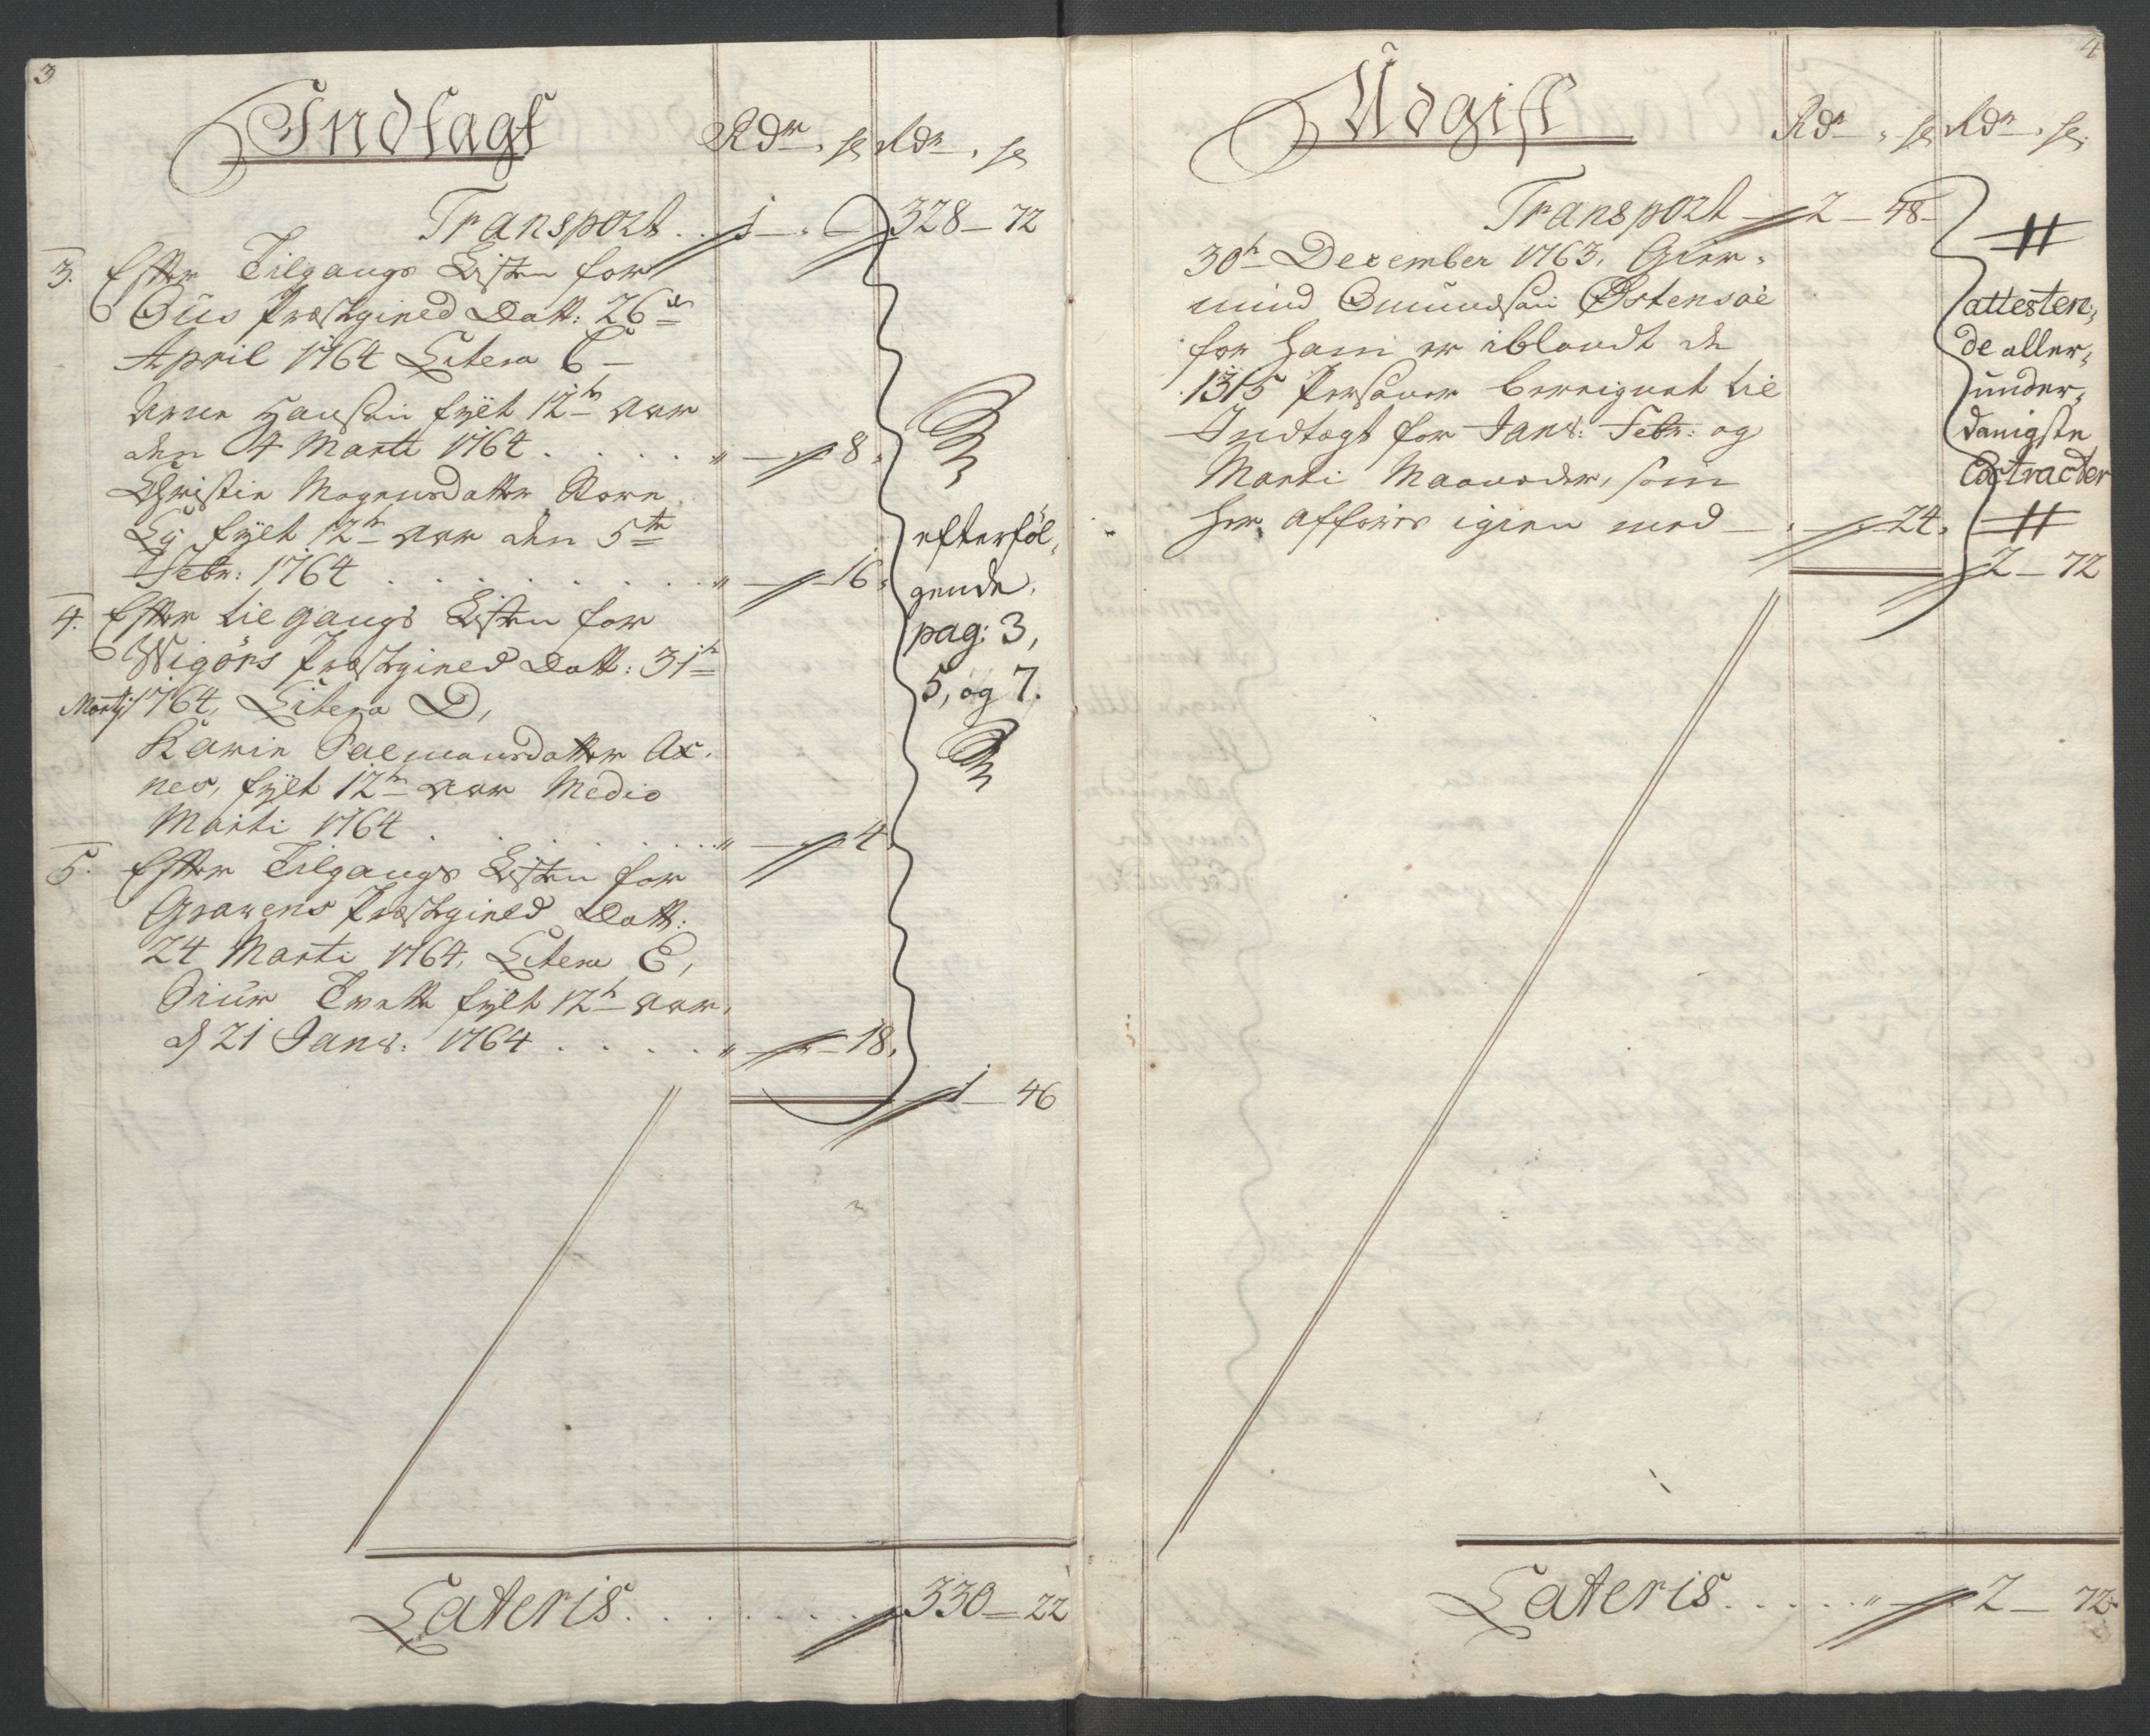 3
Indtagt
Rdr. ſs Rdr. ſs
Transport . . 1 — „ — 328 — 72
3. Efter Tilgangs Listen for
Ous Præstegield Datt: 26de
April 1764 Litera C —
Arne Hansen fyldt 12te Aar
den 4 Marti 1764 . . . . . „ — 8.
Christie Magnusdatter
fyldt 12te Aar den 5te
Febr: 1764 . . . . . . . . „ — 16.
4. Efter tilgangs Listen for
Wigørs Præstegield Datt: 31te
Martij 1764, Litera D,
Karie Salmonsdatter Ax-
nes, fyldt 12te Aar Medio
Marti 1764 . . . . . . . „ — 4.
5. Efter Tilgangs Listen for
Gravens Præstegield Datt:
24 Marti 1764, Litera E,
Siur Tvette fyldt 12te Aar
d 21 Janv: 1764 . . . . . „ — 18.
efterføl-
gende
pag: 3,
5, og 7.
1 — 46
Lateris . . . . . . . 330 — 22
4
Udgift
Rdr. ſs Rdr. ſs
Transport — 2 — 48 —
30te December 1763, Gier-
mund Omundsen Østensøe
for ham er iblandt de
1315 Personer bereignet til
Indtægt for Janv: Febr: og
Marti Maaneder, som
her afføres igien med — „ — 24.
attesteren-
de aller-
under-
danigste
Extracter
2 — 72
Lateris . . . . . „ — 2 — 72